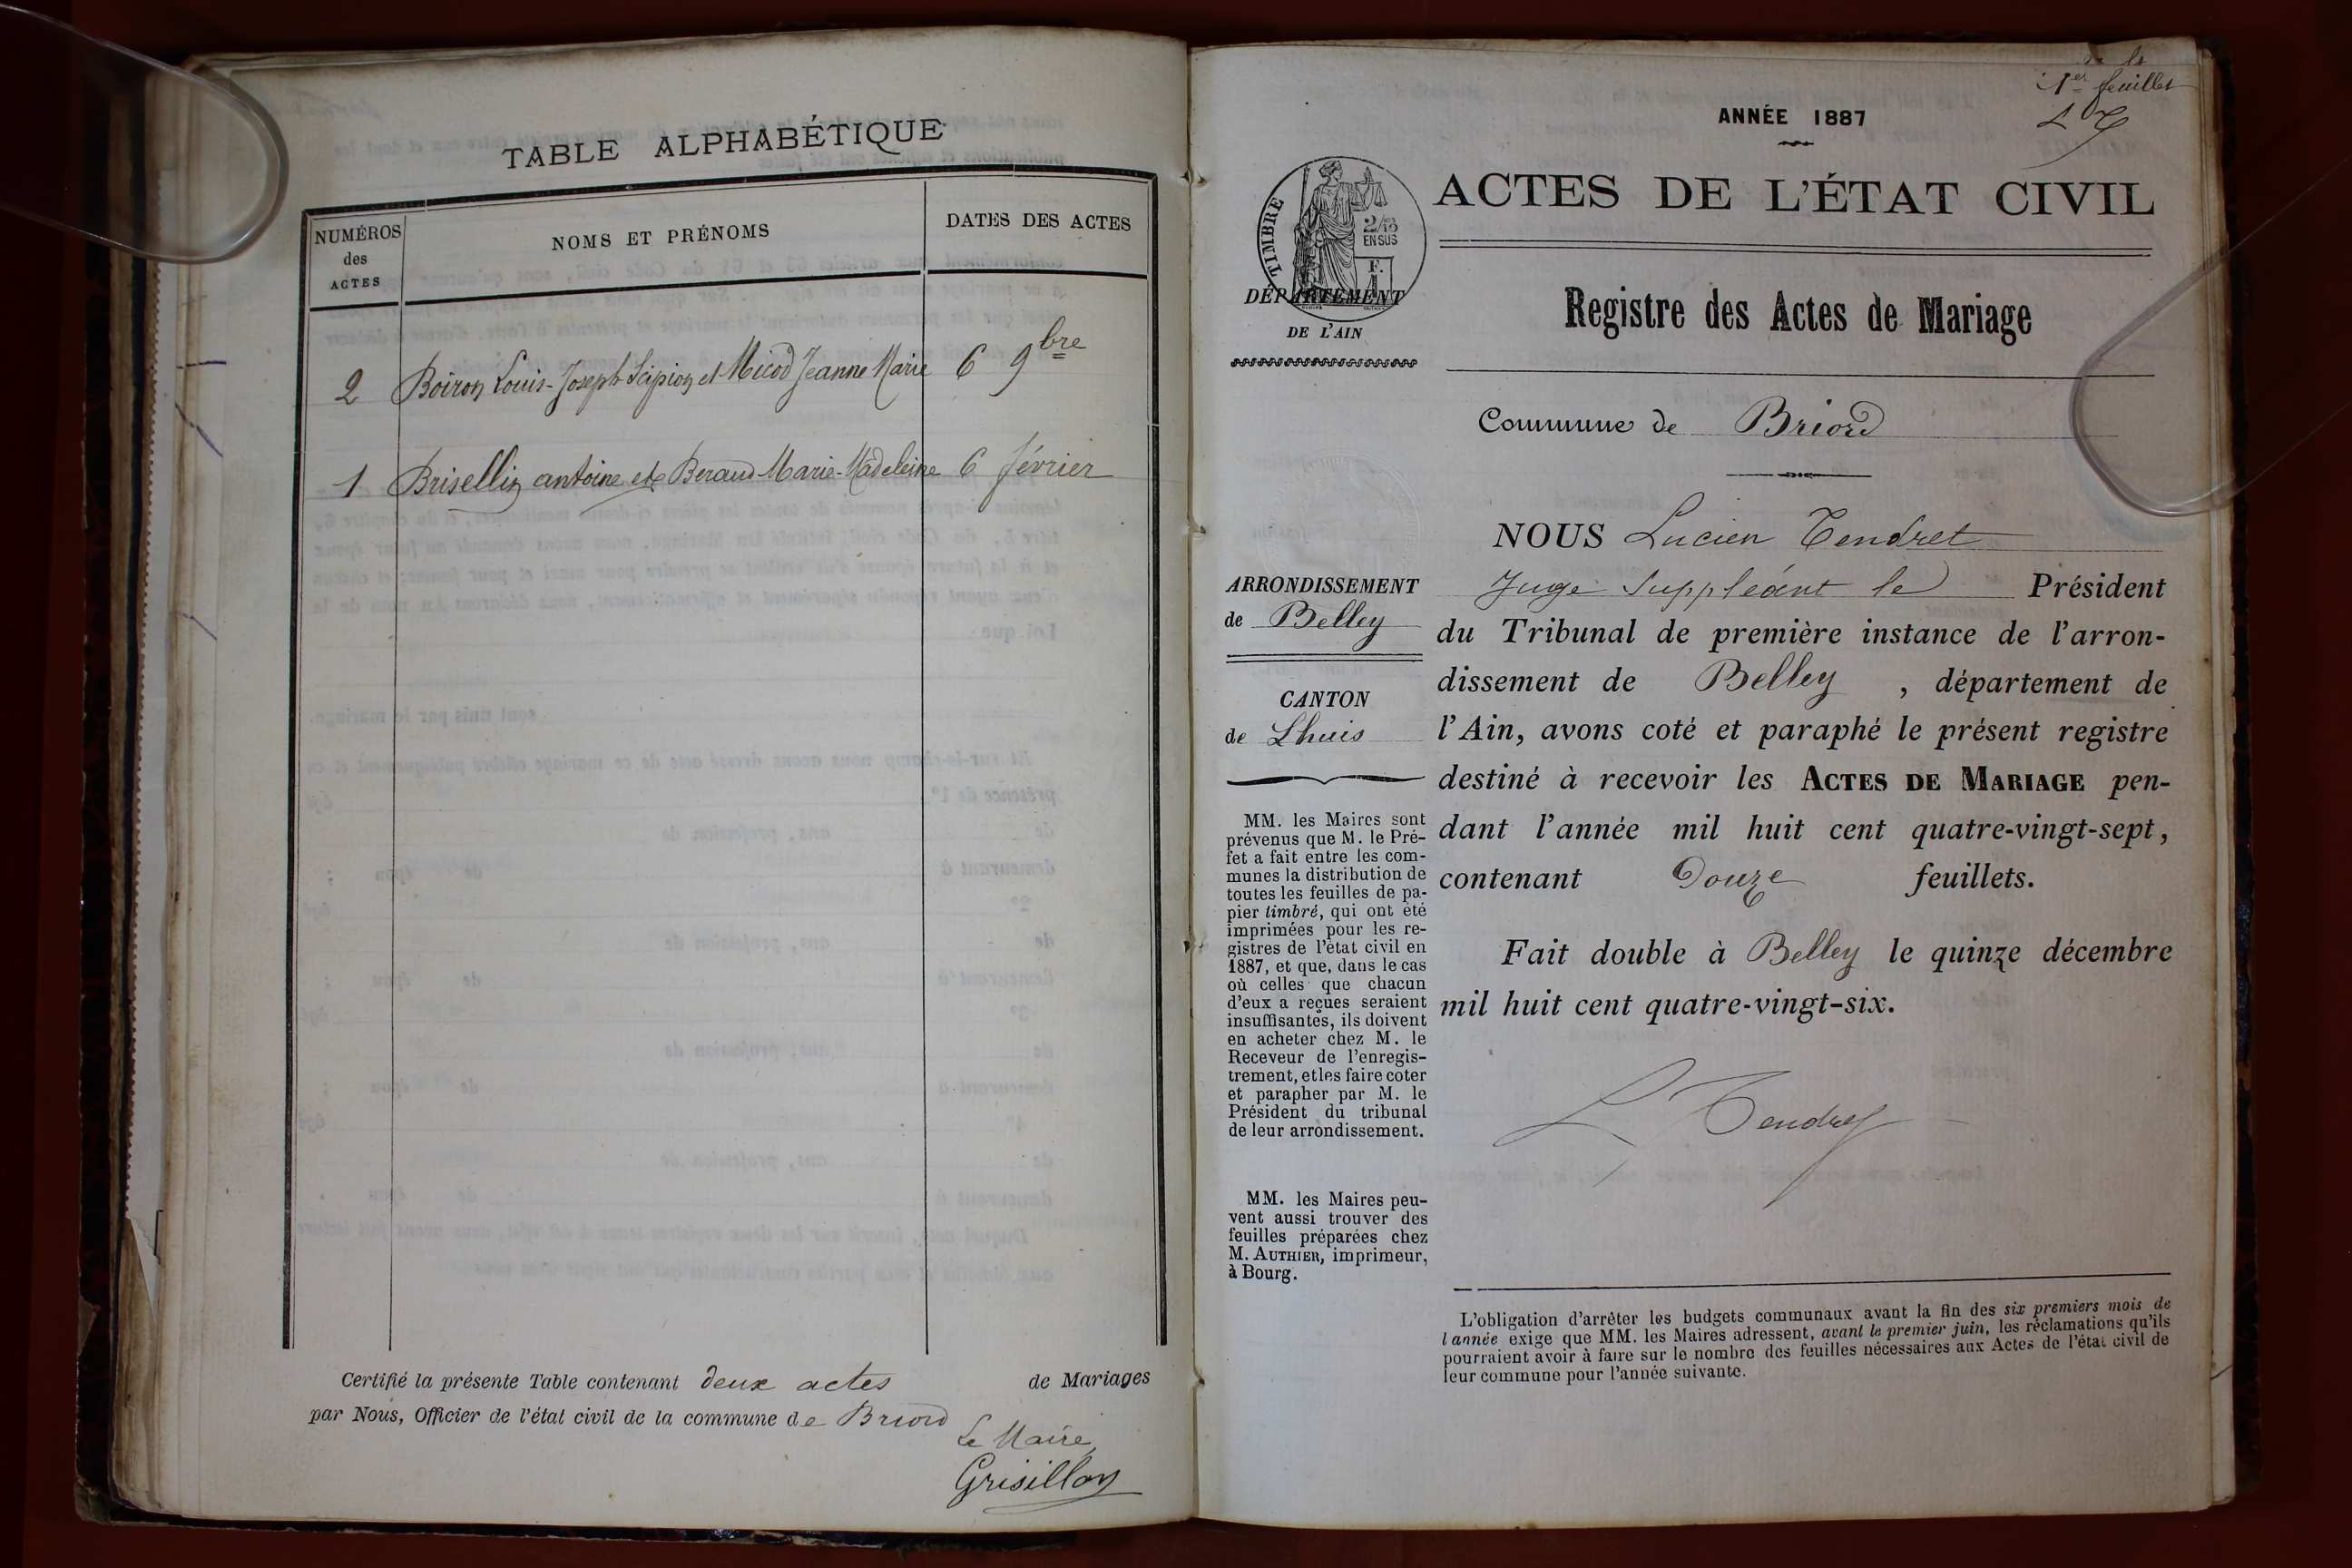 TABLE ALPHABÉTIQUE
NUMÉROS des ACTES
NOMS ET PRÉNOMS
DATES DES ACTES
2 Boiron Louis-Joseph Scipion et Micod Jeanne Marie 6 9bre
1 Brisellin antoine et Beraud Marie-Madeleine 6 février
Certifié la présente Table contenant deux actes de Mariages
par Nous, Officier de l'état civil de la commune de Briord
Le Maire,
Grisillon
1er feuillet
L T
ANNÉE 1887
ACTES DE L'ÉTAT CIVIL
TIMBRE
2/10
EN SUS
F.
1
DÉPARTEMENT
DE L'AIN
Registre des Actes de Mariage
Commune de Briord
ARRONDISSEMENT
de Belley
CANTON
de Lhuis
MM. les Maires sont
prévenus que M. le Pré-
fet a fait entre les com-
munes la distribution de
toutes les feuilles de pa-
pier timbré, qui ont été
imprimées pour les re-
gistres de l'état civil en
1887, et que, dans le cas
où celles que chacun
d'eux a reçues seraient
insuffisantes, ils doivent
en acheter chez M. le
Receveur de l'enregis-
trement, et les faire coter
et parapher par M. le
Président du tribunal
de leur arrondissement.
MM. les Maires peu-
vent aussi trouver des
feuilles préparées chez
M. AUTHIER, imprimeur,
à Bourg.
NOUS Lucien Tendret
Juge Suppléant le Président
du Tribunal de première instance de l'arron-
dissement de Belley , département de
l'Ain, avons coté et paraphé le présent registre
destiné à recevoir les ACTES DE MARIAGE pen-
dant l'année mil huit cent quatre-vingt-sept,
contenant Douze feuillets.
Fait double à Belley le quinze décembre
mil huit cent quatre-vingt-six.
L Tendret
L'obligation d'arrêter les budgets communaux avant la fin des six premiers mois de
l'année exige que MM. les Maires adressent, avant le premier juin, les réclamations qu'ils
pourraient avoir à faire sur le nombre des feuilles nécessaires aux Actes de l'état civil de
leur commune pour l'année suivante.